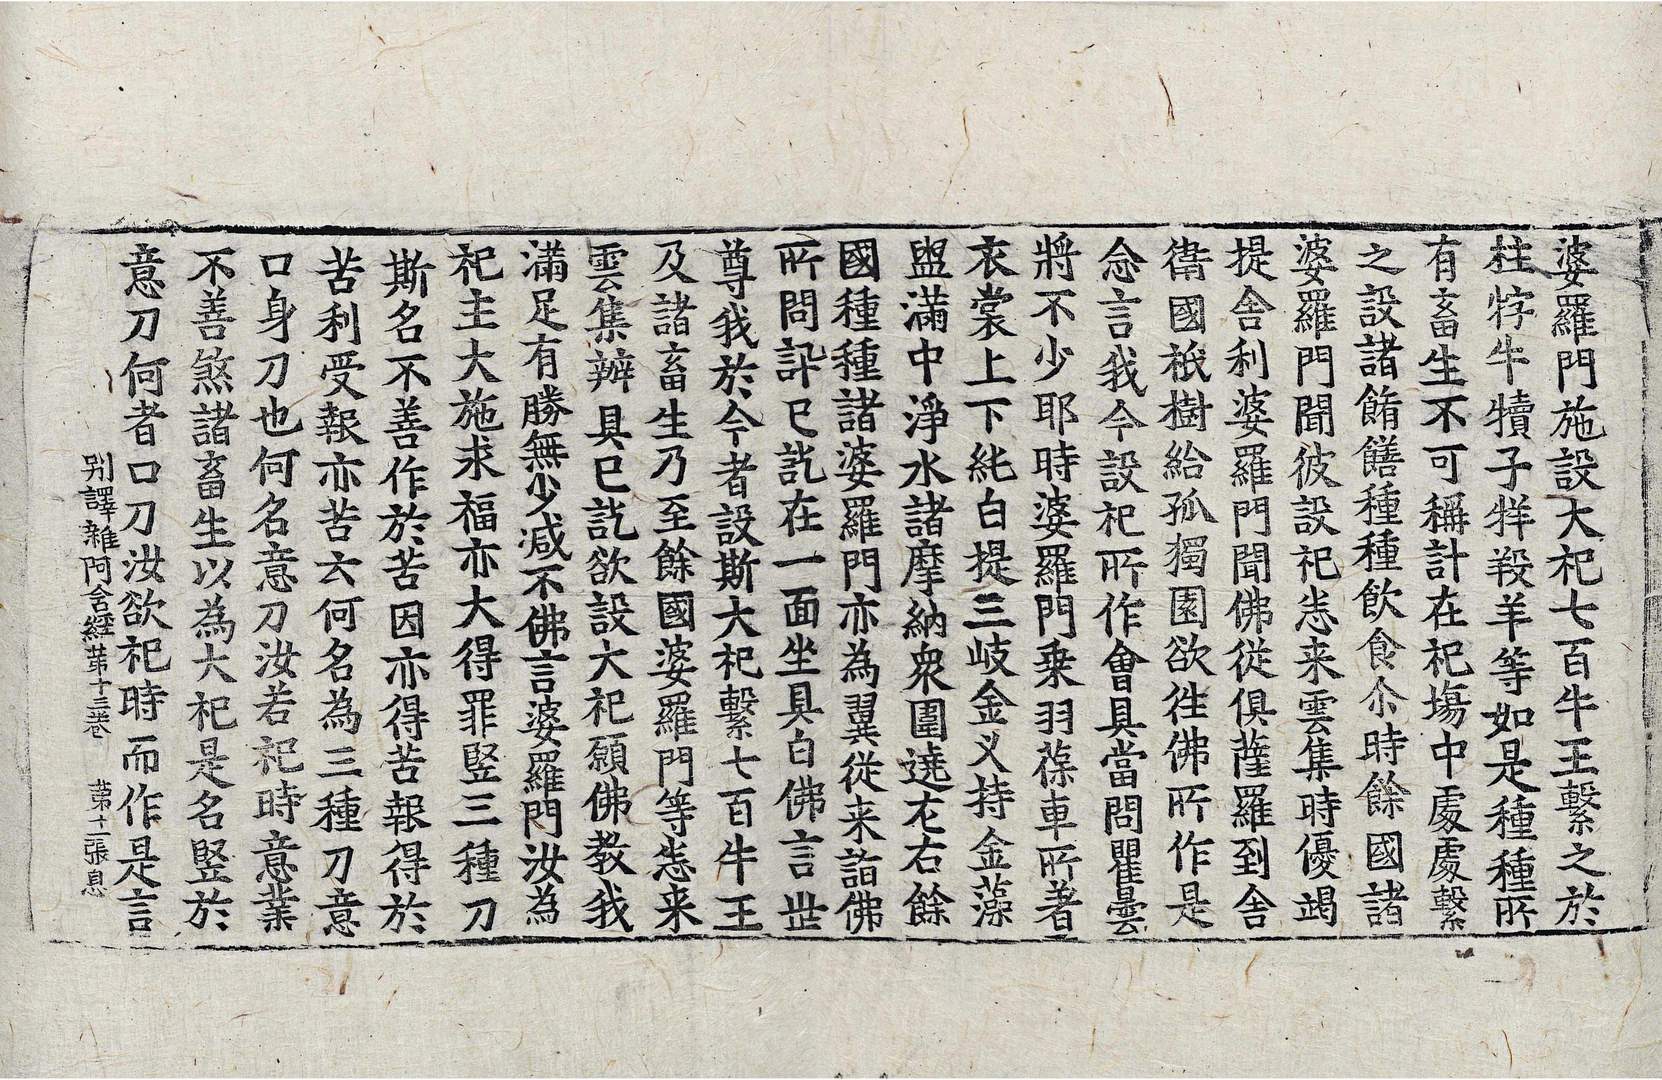 婆羅門施設大祀七百牛王繫之於
柱牸牛犢子牂羖羊等如是種種所
有畜生不可稱計在祀塲中處處繫
之設諸餚饍種種飲食尒時餘國諸
婆羅門聞彼設祀悉来雲集時優竭
提舍利婆羅門聞佛從俱薩羅到舍
衛國祇樹給孤獨園欲徃佛所作是
念言我今設祀所作會具當問瞿曇
將不少耶時婆羅門乗羽葆車所著
衣裳上下純白提三岐金义持金藻
盥滿中淨水諸摩納衆圍遶左右餘
國種種諸婆羅門亦為翼從来詣佛
所問訊已訖在一面坐具白佛言世
尊我於今者設斯大祀繫七百牛王
及諸畜生乃至餘國婆羅門等悉来
雲集辦具已訖欲設大祀願佛教我
滿足有勝無少减不佛言婆羅門汝為
祀主大施求福亦大得罪竪三種刀
斯名不善作於苦因亦得苦報得於
苦利受報亦苦云何名為三種刀意
口身刀也何名意刀汝若祀時意業
不善煞諸畜生以為大祀是名竪於
意刀何者口刀汝欲祀時而作是言
别譯雜阿含經苐十三卷 苐十二張 息